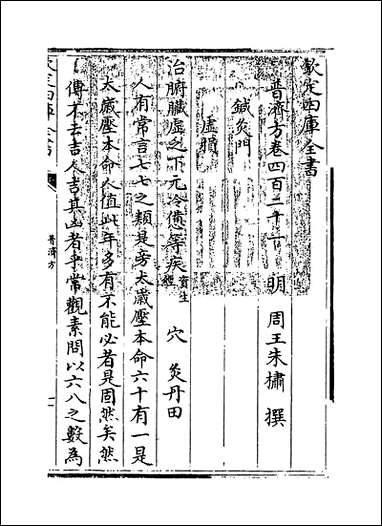 欽定四庫全書
普濟方卷四百二十一
明 周王朱橚 撰
鍼灸門
虚損
治腑臟虚乏下元冷憊等疾資生經 穴 灸丹田
人有常言七七之類是旁太歲壓本命六十有一是
太歲壓本命人值此年多有不能必者是固然矣然
傳不云吉人吉其凶者乎常觀素問以六八之數為
普濟方